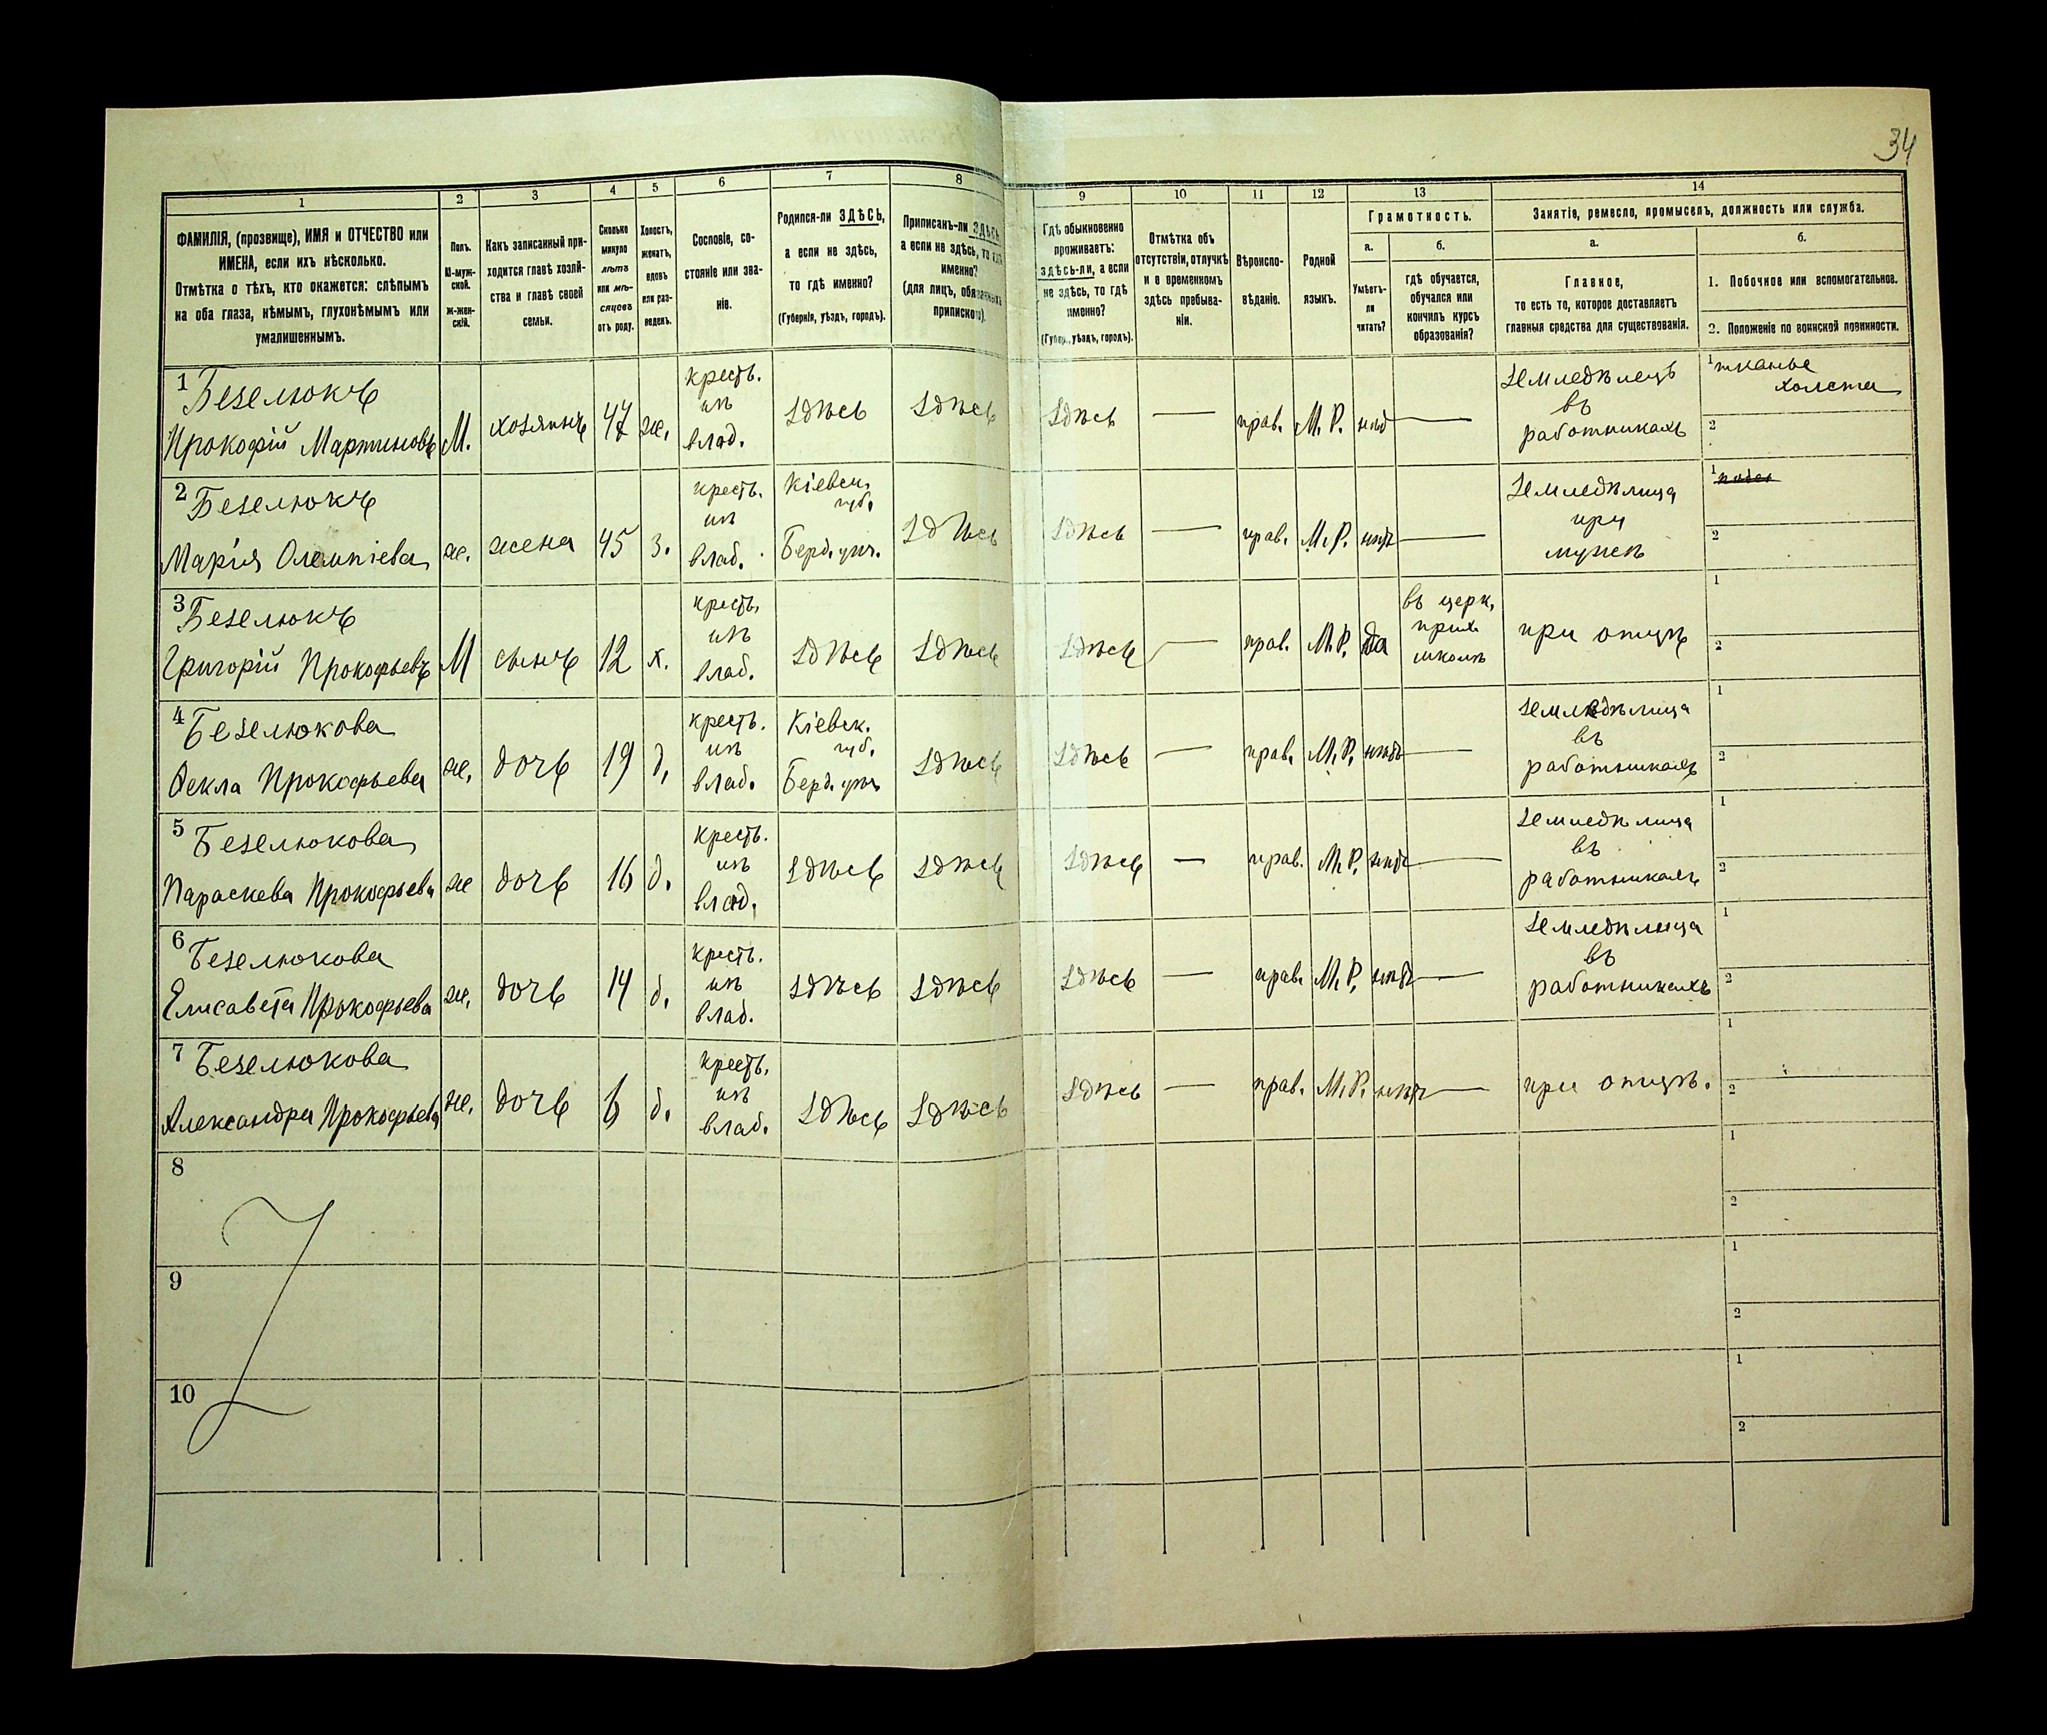 34
1
2
3
4
5
6
7
8
9
10
11
12
13
14
ФАМИЛІЯ, (прозвище), ИМЯ и ОТЧЕСТВО или
ИМЕНА, если ихъ нѣсколько.
Отмѣтка о тѣхъ, кто окажется: слѣпымъ
на оба глаза, нѣмымъ, глухонѣмымъ или
умалишеннымъ.
Полъ.
М-муж-
ской.
Ж-жен-
скій.
Какъ записанный при-
ходится главѣ хозяй-
ства и главѣ своей
семьи.
Сколько
минуло
лѣтъ
или мѣ-
сяцевъ
отъ роду.
Холостъ,
женатъ,
вдовъ
или раз-
веденъ.
Сословіе, со-
стояніе или зва-
ніе.
Родился-ли ЗДѢСЬ,
а если не здѣсь,
то гдѣ именно?
(Губернія, уѣздъ, городъ).
Приписанъ-ли ЗДѢСЬ,
а если не здѣсь, то гдѣ
именно?
(для лицъ, обязанныхъ
припиской).
Гдѣ обыкновенно
проживаетъ:
здѣсь-ли, а если
не здѣсь, то гдѣ
именно?
(Губер., уѣздъ, городъ).
Отмѣтка объ
отсутствіи, отлучкѣ
и о временномъ
здѣсь пребыва-
ніи.
Вѣроиспо-
вѣданіе.
Родной
языкъ.
Грамотность.
а.
б.
Умѣетъ-
ли
читать?
гдѣ обучается,
обучался или
кончилъ курсъ
образованія?
Занятіе, ремесло, промыселъ, должность или служба.
а.
б.
Главное,
то есть то, которое доставляетъ
главныя средства для существованія.
1. Побочное или вспомогательное.
2. Положеніе по воинской повинности.
1 Безелюкъ
Прокофій Мартиновъ
М.
хозяинъ
47
ж.
кресть.
изъ
влад.
здѣсь
здѣсь
здѣсь
—
прав.
М. Р.
нѣтъ
—
земледѣлецъ
въ
работникахъ
1 тканье
холста
2
2 Безелюкъ
Марія Олемпіева
ж.
жена
45
з.
кресть.
изъ
влад.
Кіевск.
губ.
Берд. уѣз.
здѣсь
здѣсь
—
прав.
М. Р.
нѣтъ
—
земледѣлица
при
мужѣ
1
2
3 Безелюкъ
Григорій Прокофьевъ
М
сынъ
12
х.
кресть.
изъ
влад.
здѣсь
здѣсь
здѣсь
—
прав.
М. Р.
да
въ церк.
прих.
школѣ
при отцѣ
1
2
4 Безелюкова
Ѳекла Прокофьева
ж.
дочь
19
д.
кресть.
изъ
влад.
Кіевск.
губ.
Берд. уѣз.
здѣсь
здѣсь
—
прав.
М. Р.
нѣтъ
—
земледѣлица
въ
работникахъ
1
2
5 Безелюкова
Параскева Прокофьева
ж
дочь
16
д.
кресть.
изъ
влад.
здѣсь
здѣсь
здѣсь
—
прав.
М. Р.
нѣтъ
—
земледѣлица
въ
работникахъ
1
2
6 Безелюкова
Елисавета Прокофьева
ж.
дочь
14
д.
кресть.
изъ
влад.
здѣсь
здѣсь
здѣсь
—
прав.
М. Р.
нѣтъ
—
земледѣлица
въ
работникахъ
1
2
7 Безелюкова
Александра Прокофьева
ж.
дочь
6
д.
кресть.
изъ
влад.
здѣсь
здѣсь
здѣсь
—
прав.
М. Р.
нѣтъ
—
при отцѣ.
1
2
8
1
2
9
1
2
10
1
2